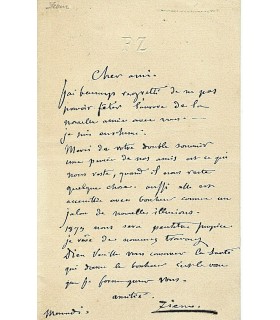 FZ
Cher ami.
J'ai beaucoup regretté de ne pas
pouvoir fêter l'aurore de la
nouvelle année avec vous —
je suis
Merci de votre double souvenir
une pensée de nos amis est ce qui
nous reste, quand il nous reste
quelque chose. aussi elle est
accueillie avec bonheur comme un
jalon de nouvelles illusions.
nous sera
je rêve de nouveaux travaux
Dieu veuille vous conserver la Santé
qui donne le bonheur c'est le vœu
que je forme pour vous.
amitié.
Ziem.